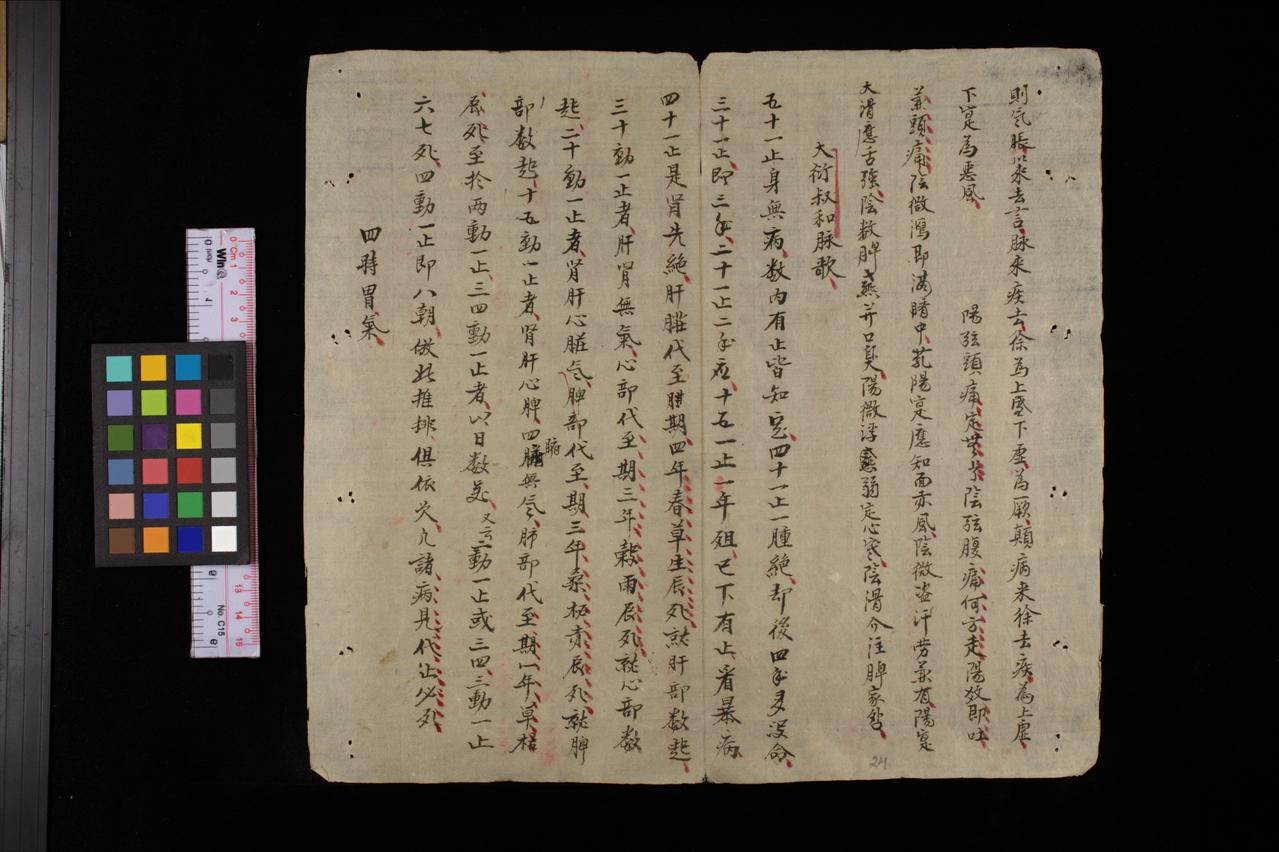 則气脹以來去言脉來疾去徐為上寔下虛為厥顛病来徐去疾為上虛
下寔為悪風
陽弦頭痛定無等陰弦腹痛何方走陽数即吐
兼頭痛陰微瀉即满臍中乳陽寔應知面赤風陰微盗汗劳兼有陽寔
大滑應舌強陰数脾熱并口臭陽微浮弱定心寒陰滑介注脾家
大衍叔和脉歌
五十一止身無病数内有止皆知定四十一止一臟絶却後四年多没命
三十一止即三年二十一止二年应十五一止一年殂已下有止看暴病
四十一止是肾先絶肝臟代至期四年春草生辰死就肝部数起
三十動一止者肝肾無氣心部代至期三年穀雨辰死就心部数
起二十動一止者肾肝心臟气脾部代至期三年桑柘赤辰死就脾
部数起十五動一止者肾肝心脾四臟無气肺部代至期一年草枯
辰死至扵两動一止三四動一止者以日数羙又云三動一止或三四三動一止
六七死四動一止即八朝倣此推排俱依欠凡諸病見代止必死
四時胃氣
24